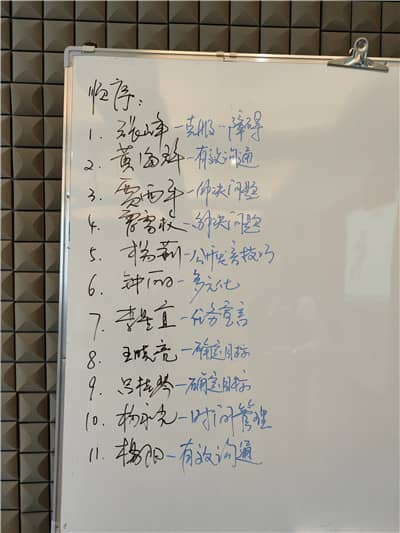 顺序：
1. 张峰－克服－障碍
2. 黄海群－有效沟通
3. 贾西平－解决问题
4. 解决问题
5. 杨莉－公开发言技巧
6. 钟丽－多元化
7. 李是宜－任务宣言
8. 王晓亮－确定目标
9. 吕桂琴－确定目标
10. 杨永光－时间管理
11. 杨阳－有效沟通